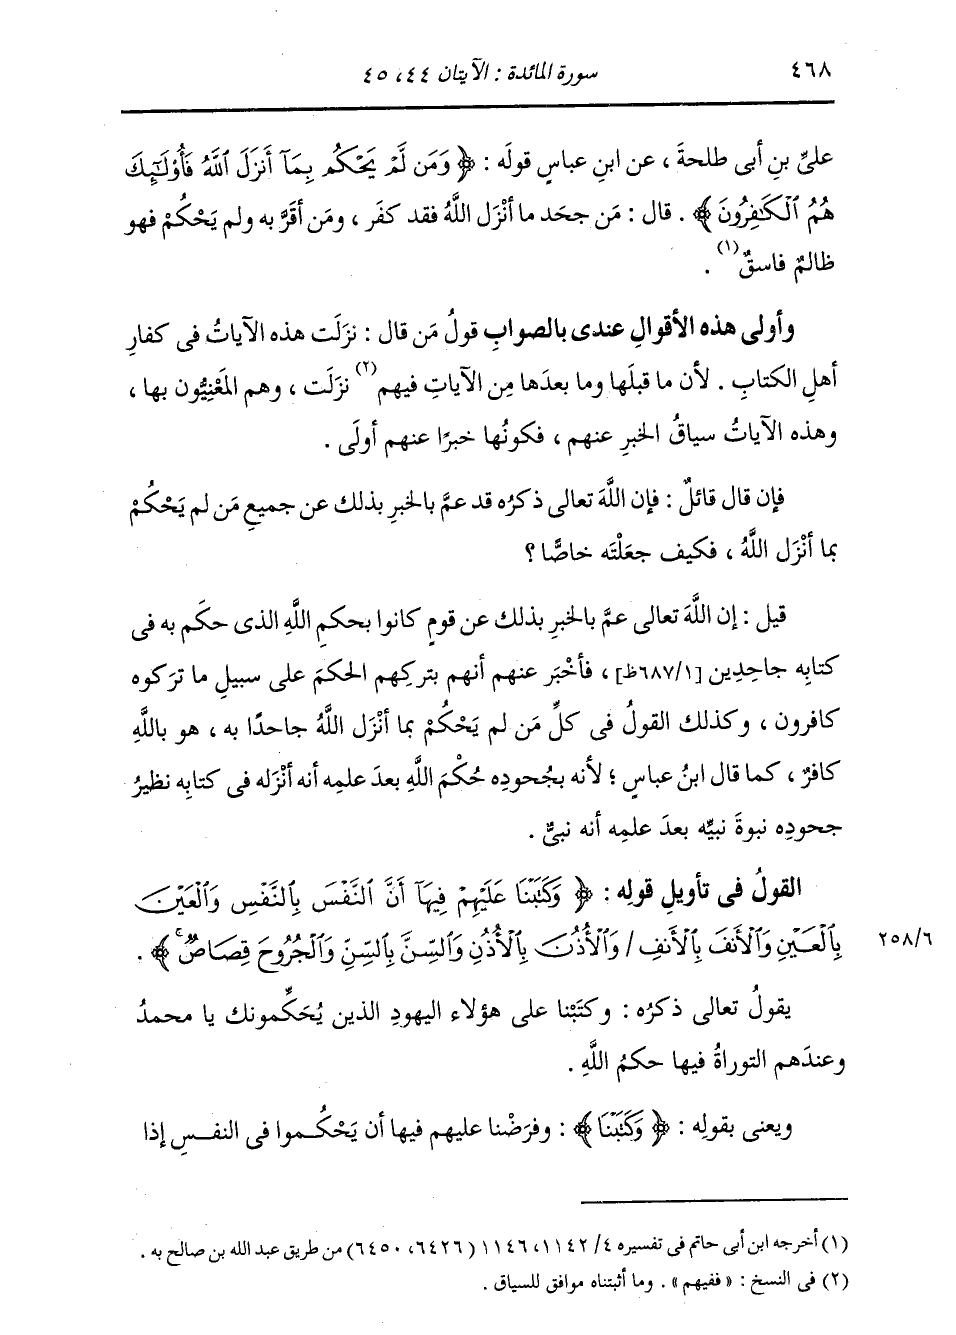 ٤٦٨ سورة المائدة : الآيتان ٤٤، ٤٥
علىِّ بنِ أبى طلحةَ ، عن ابنِ عباسٍ قولَه : ﴿ وَمَن لَّمْ يَحْكُم بِمَآ أَنزَلَ ٱللَّهُ فَأُوْلَٰٓئِكَ
هُمُ ٱلْكَٰفِرُونَ ﴾ . قال : مَن جحَد ما أَنْزَل اللَّهُ فقد كفَر ، ومَن أقَرَّ به ولم يَحْكُمْ فهو
ظالمٌ فاسقٌ(١) .
وأولى هذه الأقوالِ عندى بالصوابِ قولُ مَن قال : نزَلَت هذه الآياتُ فى كفارِ
أهلِ الكتابِ . لأن ما قبلَها وما بعدَها مِن الآياتِ فيهم(٢) نزَلَت ، وهم المَعْنِيُّون بها ،
وهذه الآياتُ سياقُ الخبرِ عنهم ، فكونُها خبرًا عنهم أولَى .
فإن قال قائلٌ : فإن اللَّهَ تعالى ذكرُه قد عمَّ بالخبرِ بذلك عن جميعِ مَن لم يَحْكُمْ
بما أنْزَل اللَّهُ ، فكيف جعَلْتَه خاصًّا ؟
قيل : إن اللَّهَ تعالى عمَّ بالخبرِ بذلك عن قومٍ كانوا بحكمِ اللَّهِ الذى حكَم به فى
كتابِه جاحِدِين [٦٨٧/١ظ] ، فأخْبَر عنهم أنهم بتركِهم الحكمَ على سبيلِ ما تركوه
كافرون ، وكذلك القولُ فى كلِّ مَن لم يَحْكُمْ بما أنْزَل اللَّهُ جاحدًا به ، هو باللَّهِ
كافرٌ ، كما قال ابنُ عباسٍ ؛ لأنه بجُحودِه حُكْمَ اللَّهِ بعدَ علمِه أنه أنْزَله فى كتابِه نظيرُ
جحودِه نبوةَ نبيِّه بعدَ علمِه أنه نبىٌّ .
القولُ فى تأويلِ قولِه : ﴿ وَكَتَبْنَا عَلَيْهِمْ فِيهَآ أَنَّ ٱلنَّفْسَ بِٱلنَّفْسِ وَٱلْعَيْنَ
بِٱلْعَيْنِ وَٱلْأَنفَ بِٱلْأَنفِ / وَٱلْأُذُنَ بِٱلْأُذُنِ وَٱلسِّنَّ بِٱلسِّنِّ وَٱلْجُرُوحَ قِصَاصٌ ۚ ﴾ . ٢٥٨/٦
يقولُ تعالى ذكرُه : وكتَبْنا على هؤلاء اليهودِ الذين يُحَكِّمونك يا محمدُ
وعندَهم التوراةُ فيها حكمُ اللَّهِ .
ويعنى بقولِه : ﴿ وَكَتَبْنَا ﴾ : وفرَضْنا عليهم فيها أن يَحْكُموا فى النفسِ إذا
(١) أخرجه ابن أبى حاتم فى تفسيره ٤/ ١١٤٢، ١١٤٦ (٦٤٢٦، ٦٤٥٠) من طريق عبد الله بن صالح به .
(٢) فى النسخ : « ففيهم » . وما أثبتناه موافق للسياق .